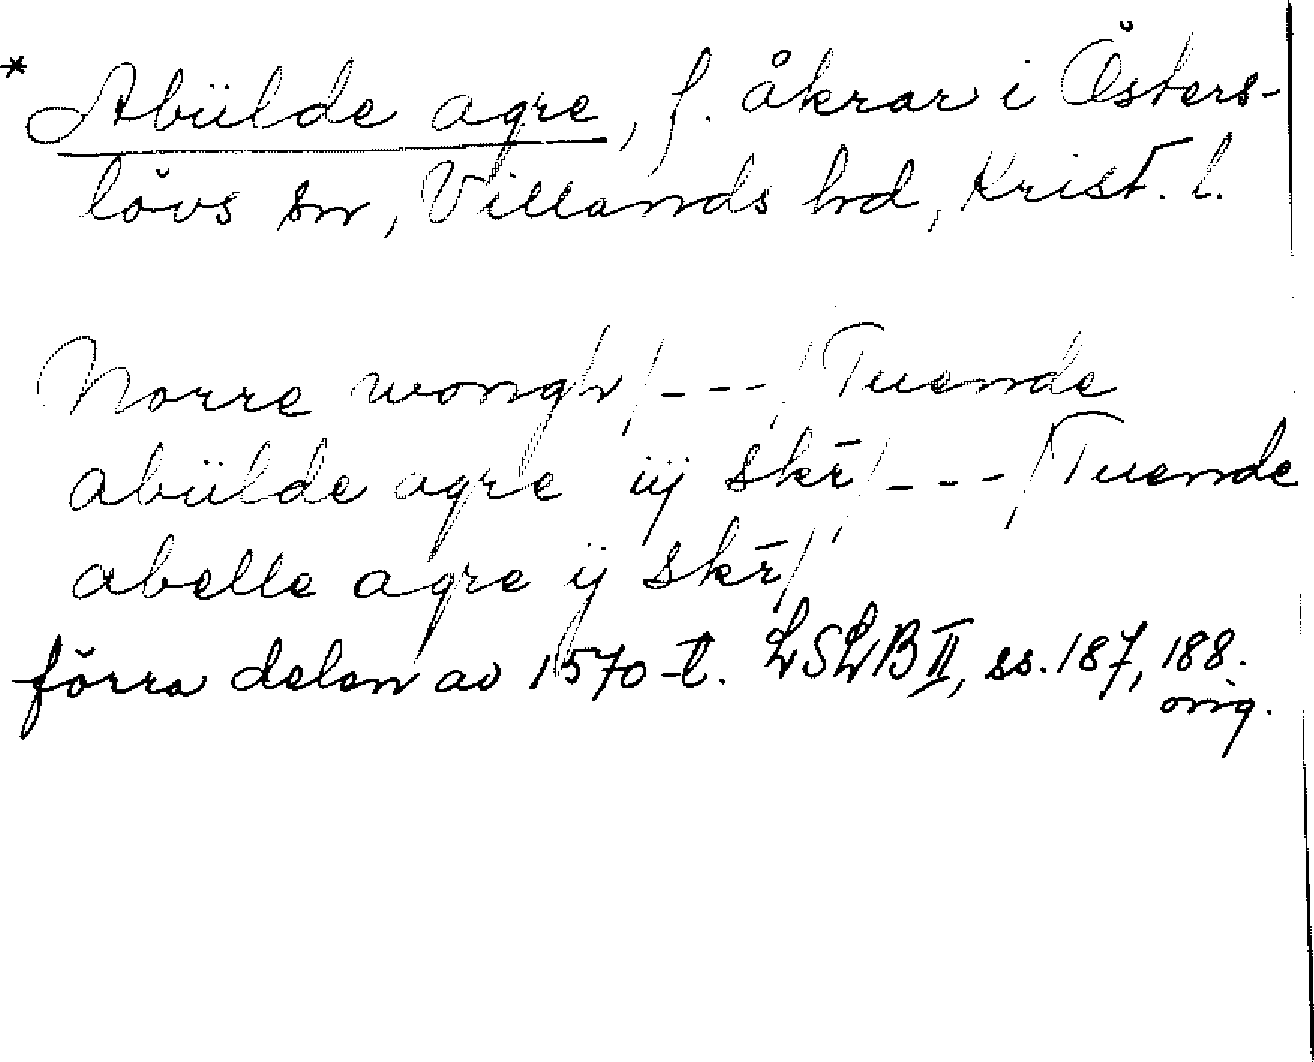 * Abülde agre, f. åkrar i Östers-
lövs sn, Villands hd, Krist. l.
Norre wongh/---/Tuende
abülde agre iij skr̄/---/Tuende
abelle agre ij skr̄/
förra delen av 1570-t. LSLB II, ss. 187, 188.
orig.